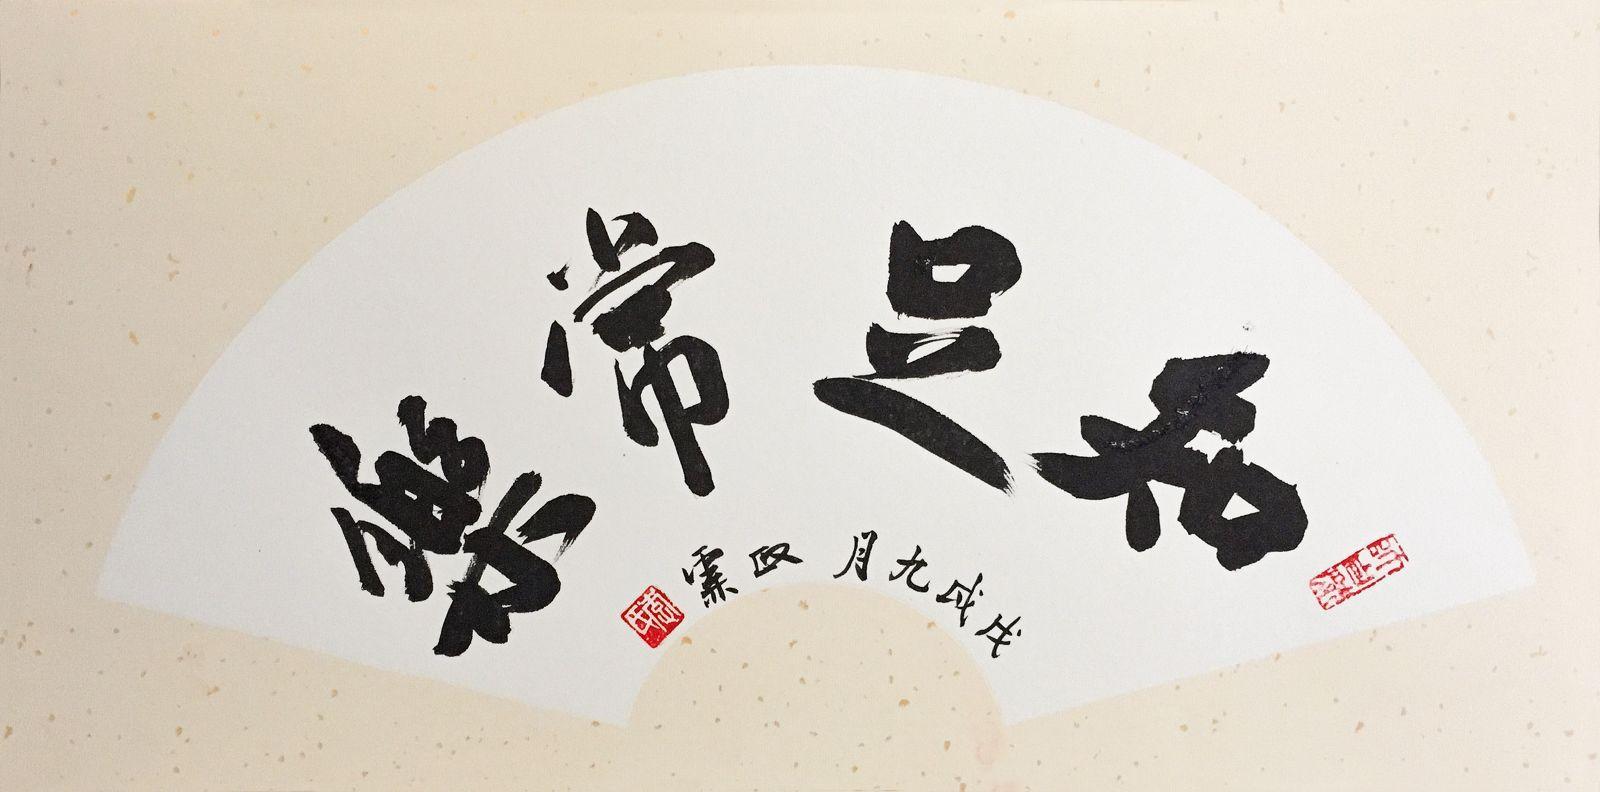 知足常樂
戊戌九月 政霖